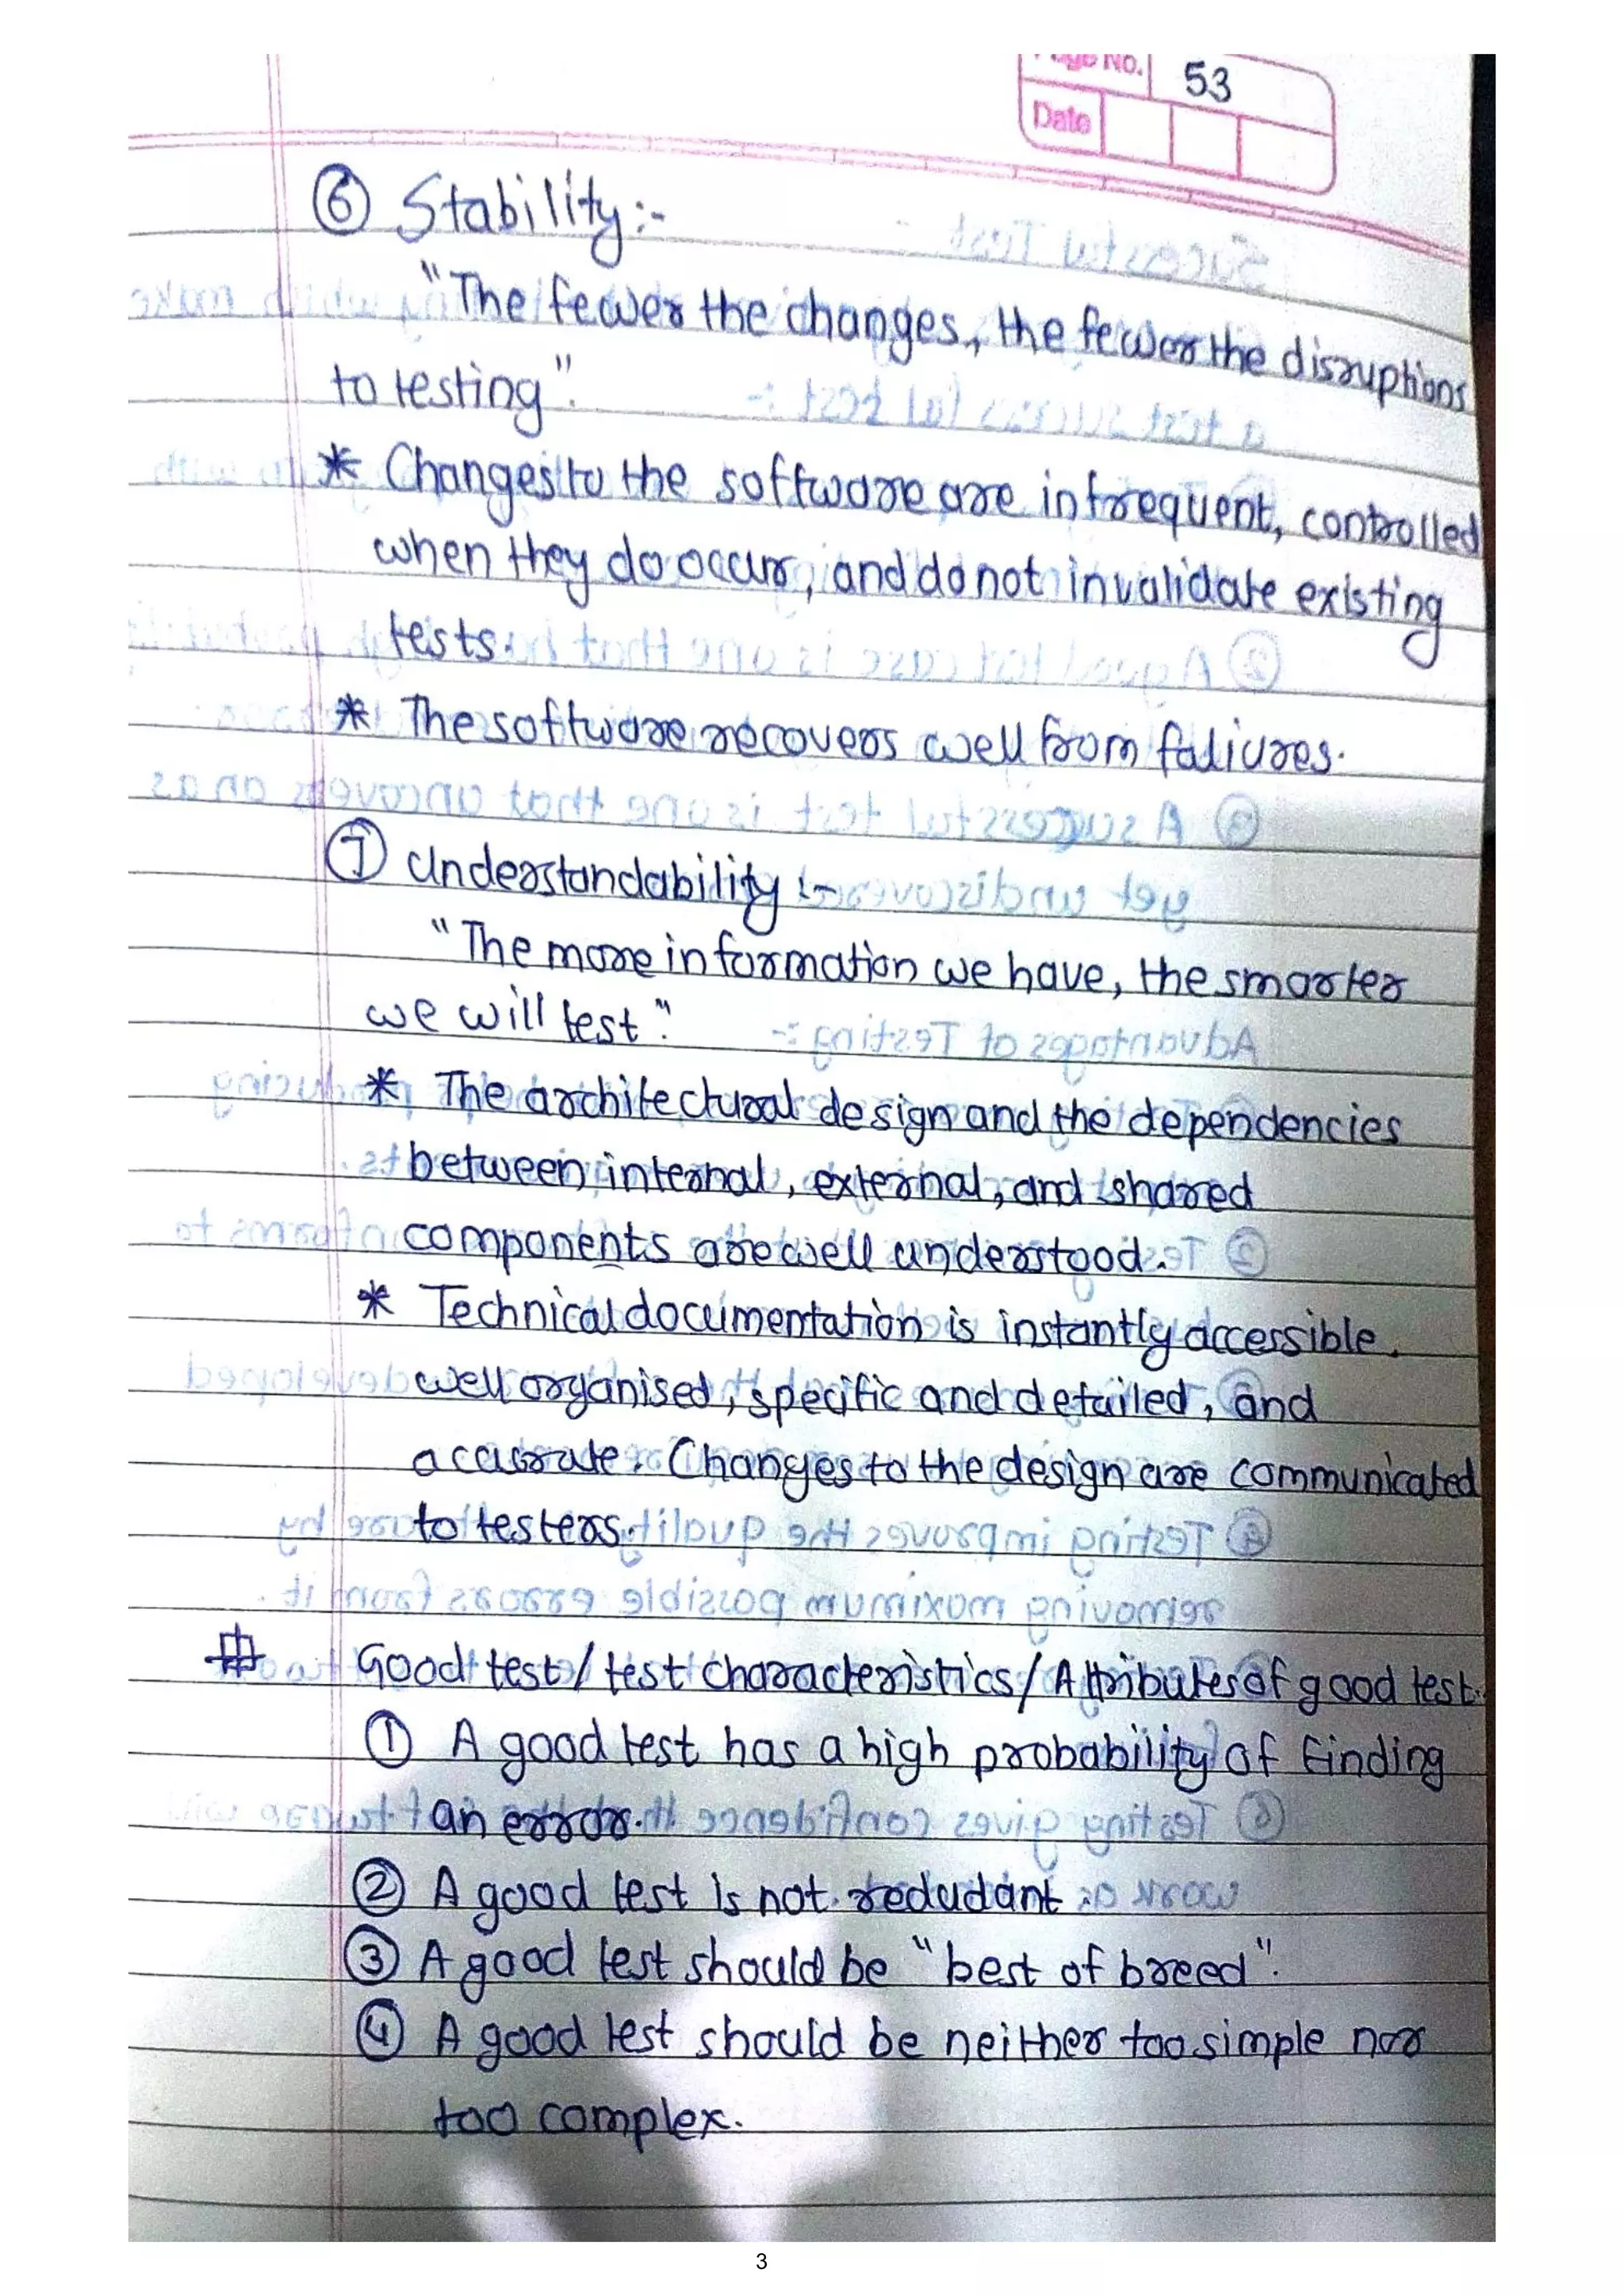 Page No. 53
Date
⑥ Stability:-
"The fewer the changes, the fewer the disruptions
to testing".
* Changes to the software are infrequent, controlled
when they do occur, and do not invalidate existing
tests.
* The software recovers well from faliures.
⑦ Understandability :-
"The more information we have, the smarter
we will test".
* The architectural design and the dependencies
between internal, external, and shared
components are well understood.
* Technical documentation is instantly accessible,
well organised, specific and detailed, and
accurate. Changes to the design are communicated
to testers.
Good test / test characteristics / Attributes of good test.
① A good test has a high probability of finding
an error.
② A good test is not redudant
③ A good test should be "best of breed".
④ A good test should be neither too simple nor
too complex.
3